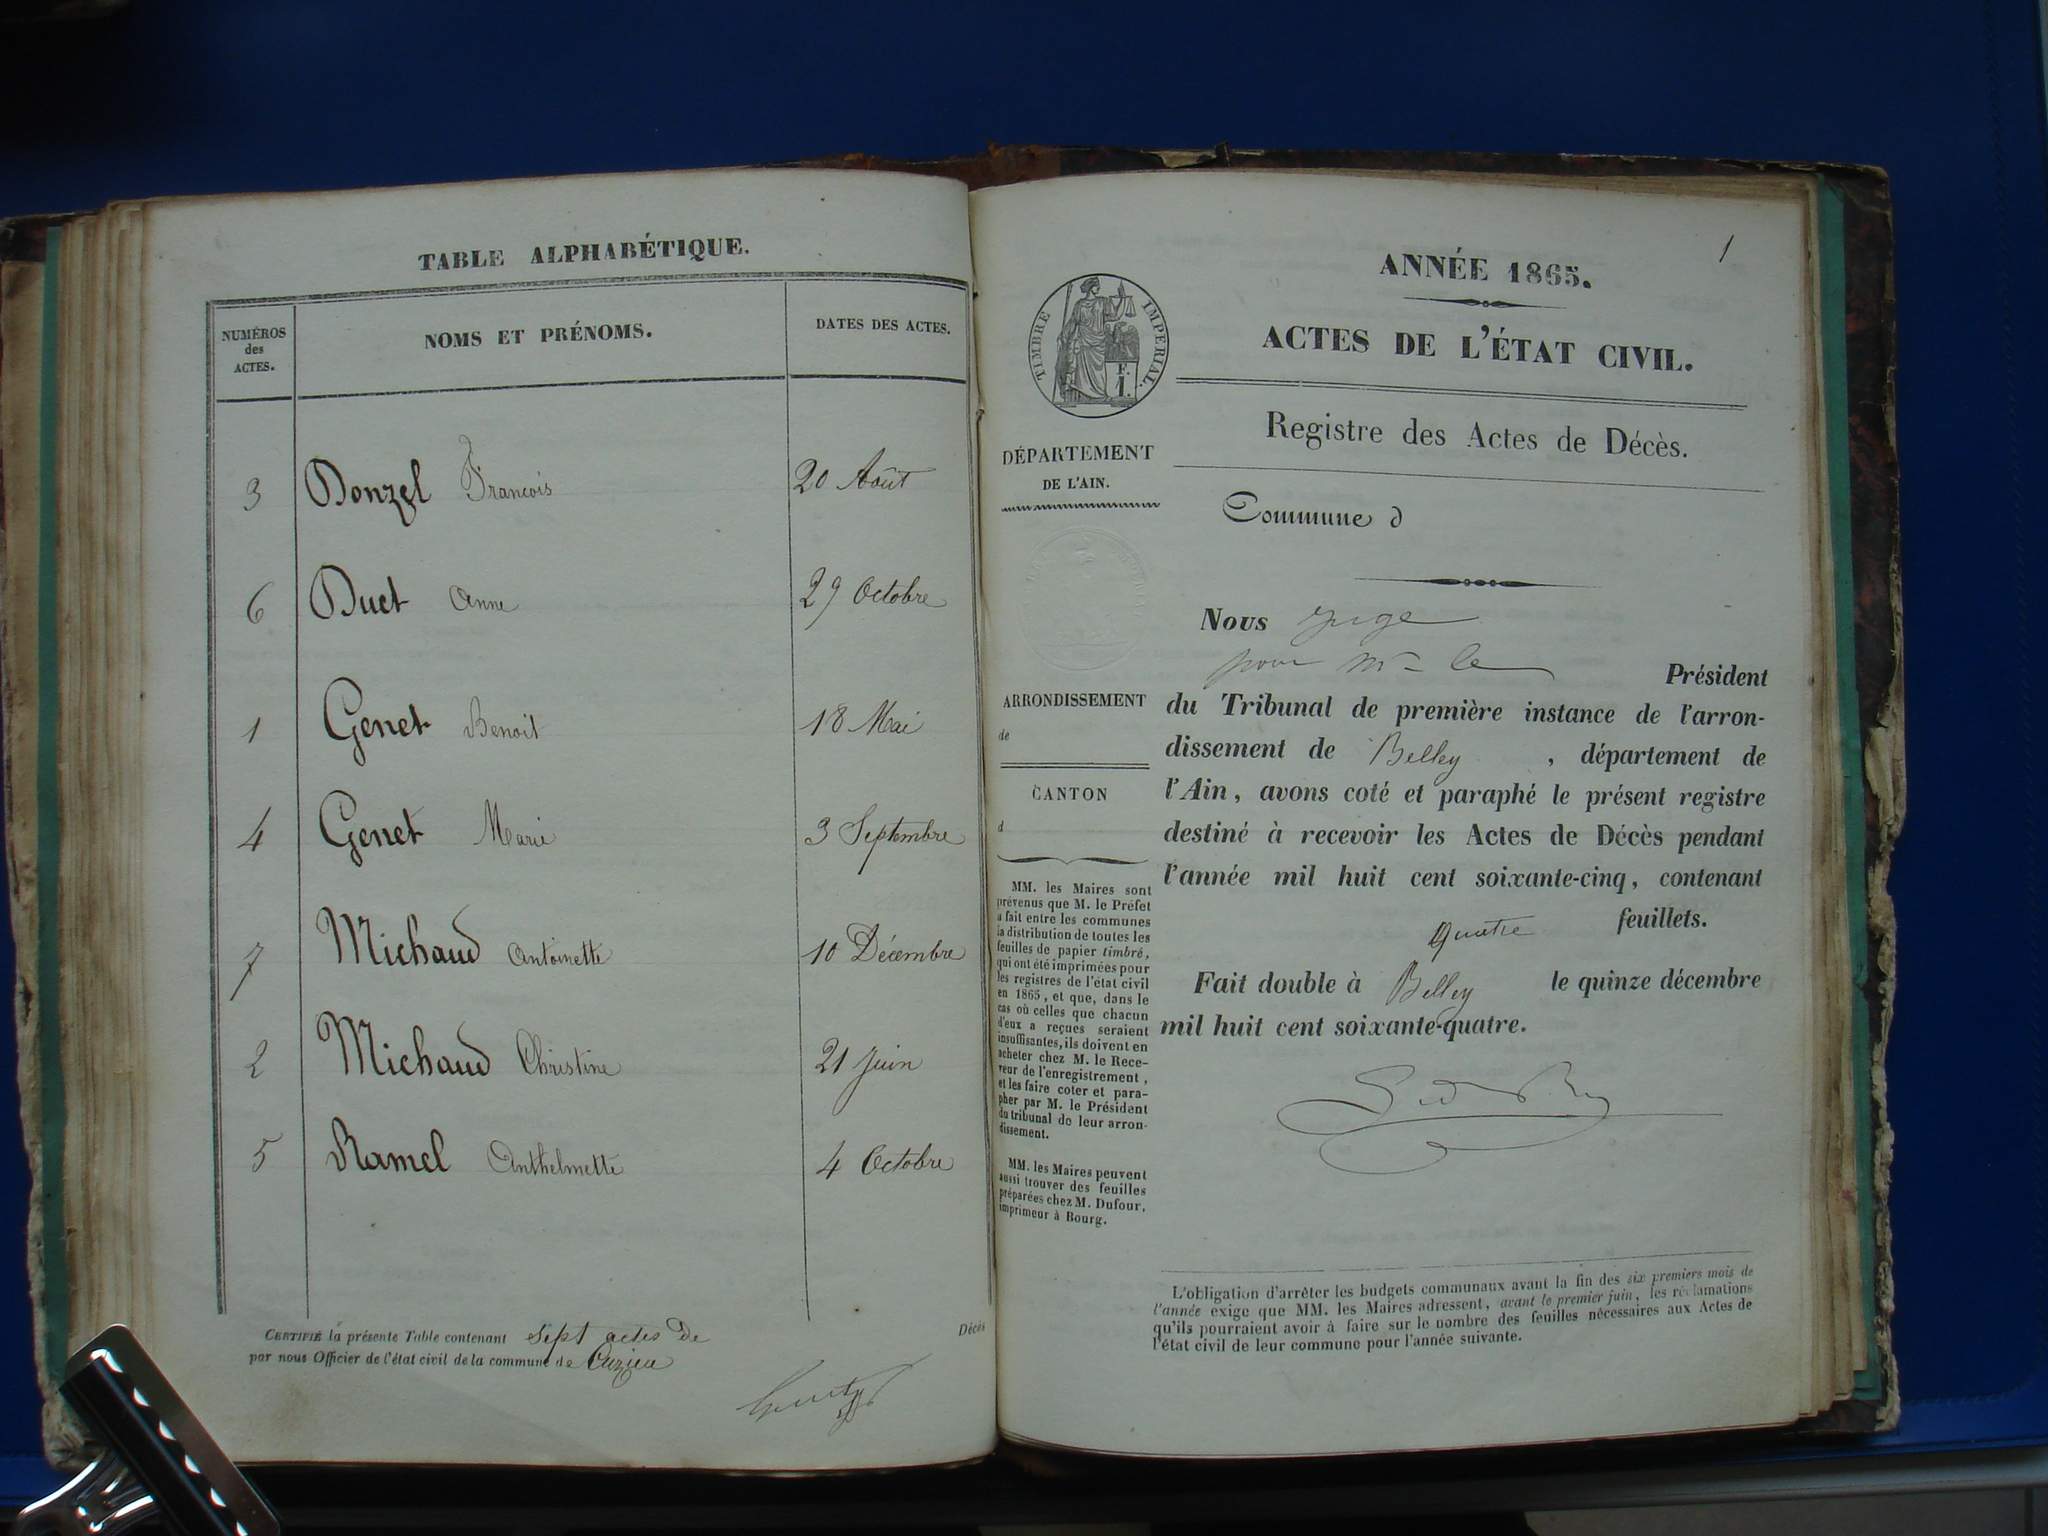 TABLE ALPHABÉTIQUE.
NUMÉROS
des
ACTES.
NOMS ET PRÉNOMS.
DATES DES ACTES.
3 Donzel François 20 Août
6 Duet Anne 29 Octobre
1 Genet Benoit 18 Mai
4 Genet Marie 3 Septembre
7 Michaud Antoinette 10 Décembre
2 Michaud Christine 21 Juin
5 Ramel Anthelmette 4 Octobre
CERTIFIÉ la présente Table contenant sept actes de Décès
par nous Officier de l'état civil de la commune de Cuzieu
1
ANNÉE 1865.
ACTES DE L'ÉTAT CIVIL.
Registre des Actes de Décès.
TIMBRE IMPERIAL.
F.
1.
DÉPARTEMENT
DE L'AIN.
ARRONDISSEMENT
de
CANTON
d
MM. les Maires sont
prévenus que M. le Préfet
a fait entre les communes
la distribution de toutes les
feuilles de papier timbré,
qui ont été imprimées pour
les registres de l'état civil
en 1865, et que, dans le
cas où celles que chacun
d'eux a reçues seraient
insuffisantes, ils doivent en
acheter chez M. le Rece-
veur de l'enregistrement,
et les faire coter et para-
pher par M. le Président
du tribunal de leur arron-
dissement.
MM. les Maires peuvent
aussi trouver des feuilles
préparées chez M. Dufour,
imprimeur à Bourg.
Commune d
Nous juge
pour Mr le Président
du Tribunal de première instance de l'arron-
dissement de Belley , département de
l'Ain, avons coté et paraphé le présent registre
destiné à recevoir les Actes de Décès pendant
l'année mil huit cent soixante-cinq, contenant
quatre feuillets.
Fait double à Belley le quinze décembre
mil huit cent soixante-quatre.
L'obligation d'arrêter les budgets communaux avant la fin des six premiers mois de
l'année exige que MM. les Maires adressent, avant le premier juin, les réclamations
qu'ils pourraient avoir à faire sur le nombre des feuilles nécessaires aux Actes de
l'état civil de leur commune pour l'année suivante.